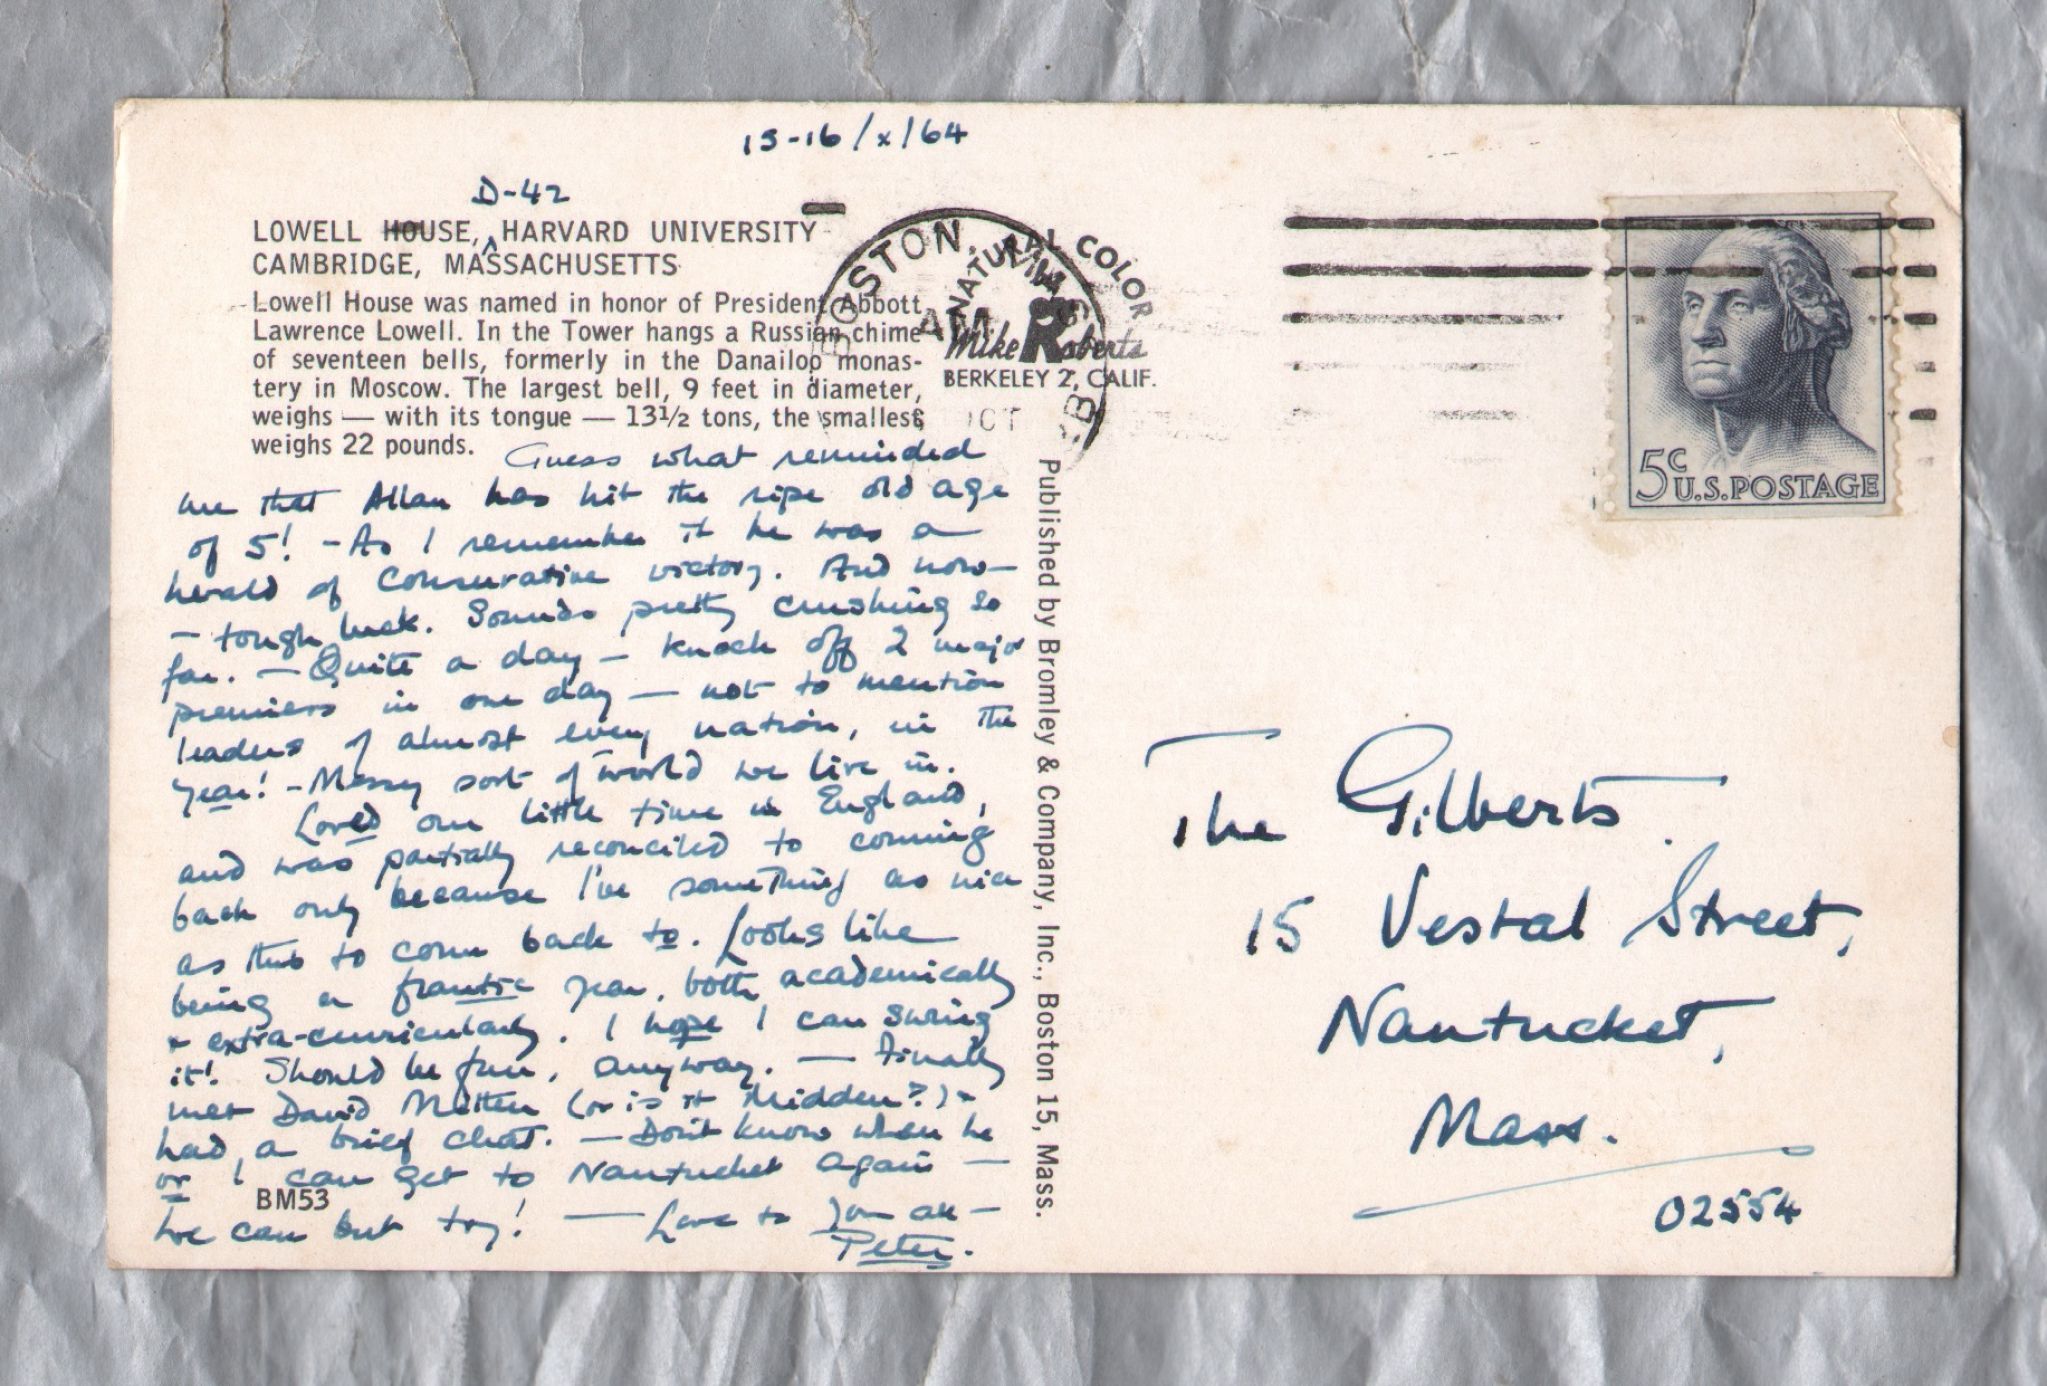 15-16/x/64
D-42
LOWELL HOUSE, HARVARD UNIVERSITY
CAMBRIDGE, MASSACHUSETTS
Lowell House was named in honor of President Abbott
Lawrence Lowell. In the Tower hangs a Russian chime
of seventeen bells, formerly in the Danailop monas-
tery in Moscow. The largest bell, 9 feet in diameter,
weighs — with its tongue — 13½ tons, the smallest
weighs 22 pounds.
BOSTON, MASS
AM
OCT
NATURAL COLOR
Mike Roberts
BERKELEY 2, CALIF.
5c
U.S. POSTAGE
Guess what reminded
me that Allan has hit the ripe old age
of 5! - As I remember it he was a
herald of Conservative victory. And now -
- tough luck. Sounds pretty crushing so
far. - Quite a day - knock off 2 major
premiers in one day - not to mention
leaders of almost every nation, in the
year! - Messy sort of world we live in.
Loved our little time in England,
and was partially reconciled to coming
back only because I've something as nice
as this to come back to. Looks like
being a frantic year, both academically
& extra-curricularly. I hope I can swing
it! Should be fun, anyway. - Finally
met David Mitten (or is it Midden?) &
had a brief chat. - Don't know when he
or I can get to Nantucket again -
BM53
we can but try! — Love to you all -
Peter.
Published by Bromley & Company, Inc., Boston 15, Mass.
The Gilberts.
15 Vestal Street,
Nantucket,
Mass.
02554